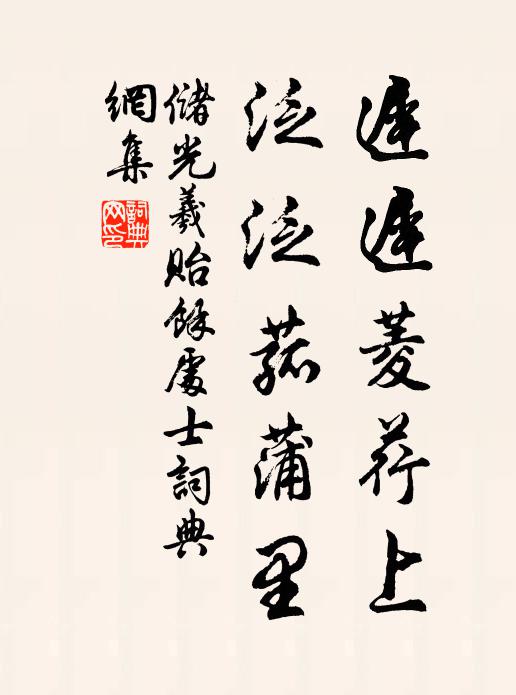 遲遲菱荇上
泛泛菰蒲里
儲光羲貽餘處士詞典
網集
詞典网印